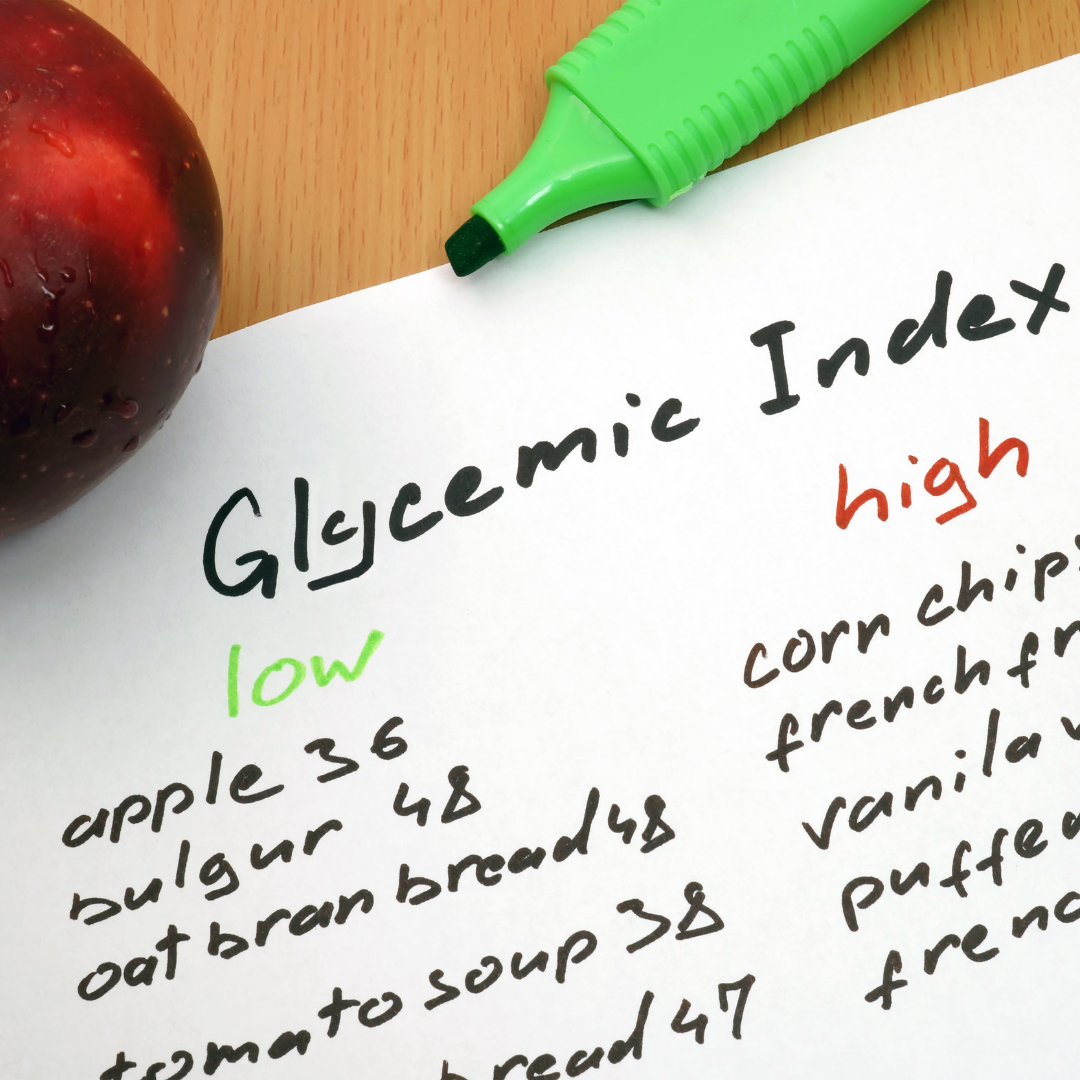 Glycemic Index
low
apple 36
bulgur 48
oat bran bread 48
tomato soup 38
bread 47
high
corn chips
french fr
vanila
puffe
frenc